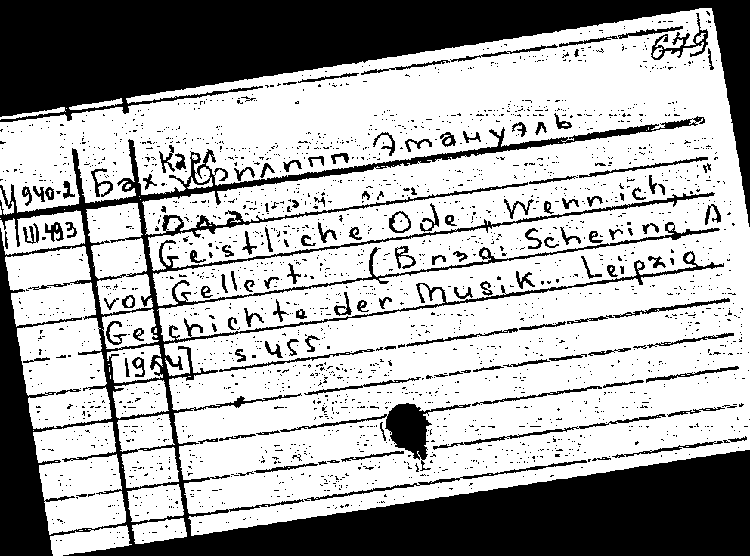 679
Ц 940-2 Бах. Карл Филипп Эмануэль
III.493
Geistliche Ode „Wenn ich,..."
von Gellert. (В изд: Schering. A
Geschichte der Musik... Leipzig.
[1954]. s.455.